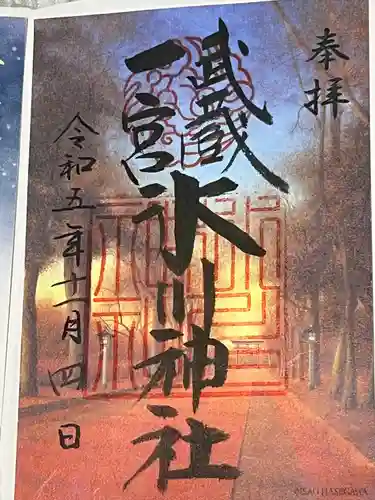 奉拝
武蔵
一宮
氷川神社
令和五年十一月四日
©ISAO HASEGAWA